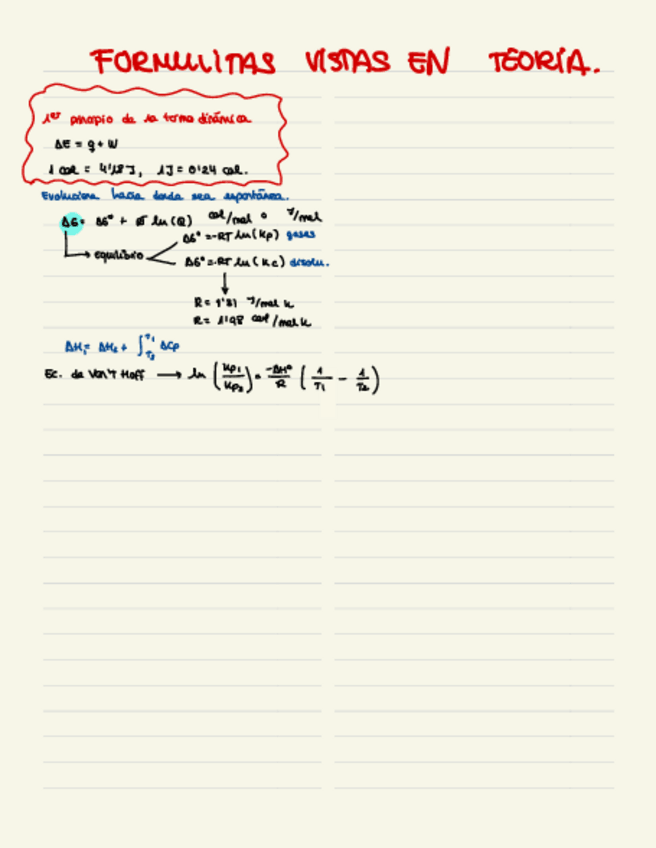 FORMULITAS VISTAS EN TEORÍA.
1er principio de la termodinámica
ΔE = q + W
1 cal = 4'18 J, 1J = 0'24 cal.
Evoluciona hacia donde sea espontánea.
ΔG = ΔG° + ln(Q) cal/mol o J/mol
ΔG° = -RT ln(Kp) gases
equilibrio
ΔG° = -RT ln(Kc) disolu.
R = J/mol K
R = 1'98 cal/mol K
ΔH₁ = ΔH₂ + ∫ ΔCp
Ec. de Van't Hoff → ln (Kp₁/Kp₂) = -ΔH°/R (1/T₁ - 1/T₂)